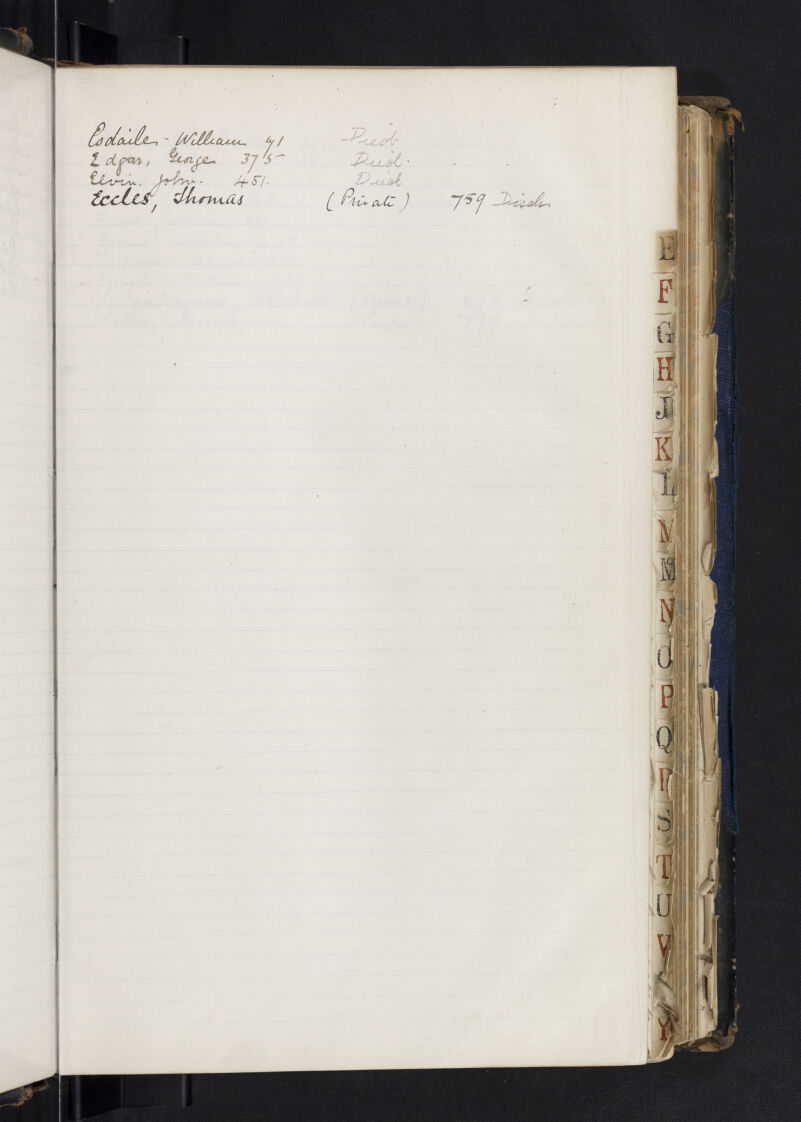 Esdaile, William 41 Died
Edgar, George 375 Died.
Elvin, John. 451. Died
Eccles, Thomas (Private) 759 Disch
E
F
G
H
J
K
L
M
M
N
O
P
Q
R
S
T
U
V
Y